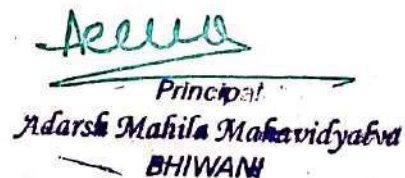 Principal
Adarsh Mahila Mahavidyalya
BHIWANI